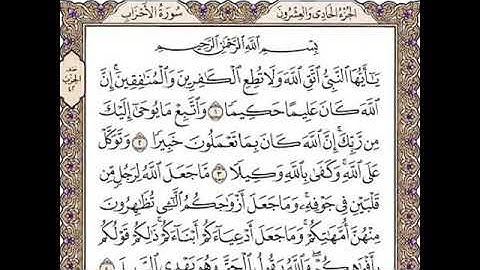 الجزء الحادي والعشرون
سورة الأحزاب
بِسْمِ اللَّهِ الرَّحْمَٰنِ الرَّحِيمِ
يَٰٓأَيُّهَا النَّبِيُّ اتَّقِ اللَّهَ وَلَا تُطِعِ الْكَٰفِرِينَ وَالْمُنَٰفِقِينَ إِنَّ
اللَّهَ كَانَ عَلِيمًا حَكِيمًا ١ وَاتَّبِعْ مَا يُوحَىٰٓ إِلَيْكَ
مِن رَّبِّكَ إِنَّ اللَّهَ كَانَ بِمَا تَعْمَلُونَ خَبِيرًا ٢ وَتَوَكَّلْ
عَلَى اللَّهِ وَكَفَىٰ بِاللَّهِ وَكِيلًا ٣ مَّا جَعَلَ اللَّهُ لِرَجُلٍ مِّن
قَلْبَيْنِ فِي جَوْفِهِ وَمَا جَعَلَ أَزْوَٰجَكُمُ الَّٰٓـِٔي تُظَٰهِرُونَ
مِنْهُنَّ أُمَّهَٰتِكُمْ وَمَا جَعَلَ أَدْعِيَآءَكُمْ أَبْنَآءَكُمْ ذَٰلِكُمْ قَوْلُكُم
بِأَفْوَٰهِكُمْ وَاللَّهُ يَقُولُ الْحَقَّ وَهُوَ يَهْدِي السَّبِيلَ ٤